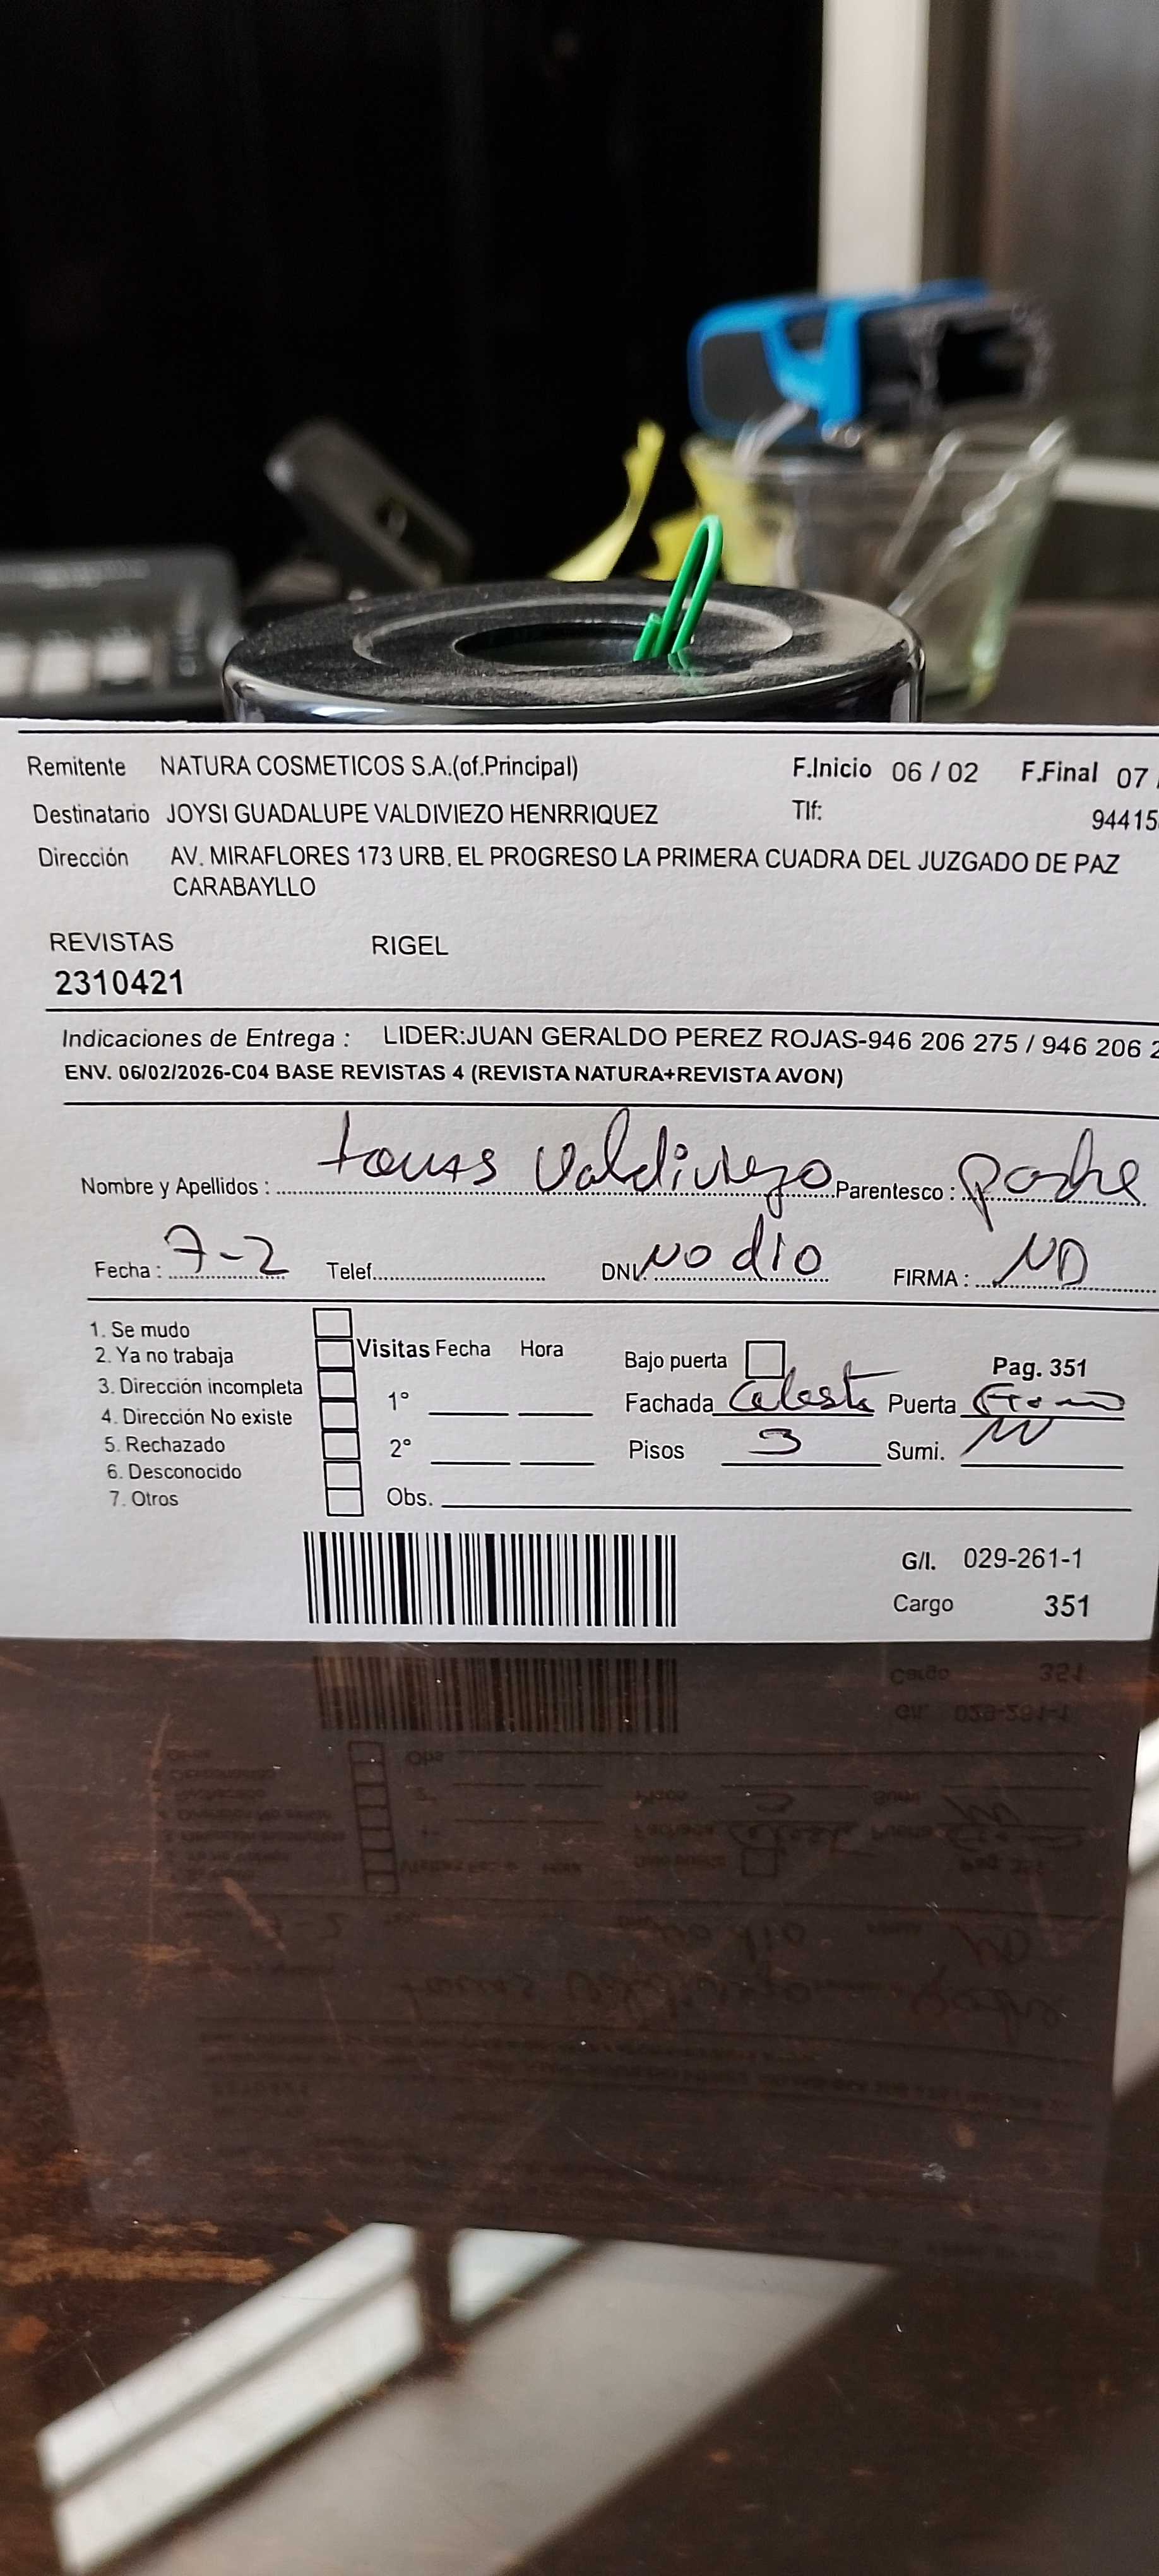 Remitente NATURA COSMETICOS S.A.(of.Principal) F.Inicio 06 / 02 F.Final 07 /
Destinatario JOYSI GUADALUPE VALDIVIEZO HENRRIQUEZ Tlf: 94415
Dirección AV. MIRAFLORES 173 URB. EL PROGRESO LA PRIMERA CUADRA DEL JUZGADO DE PAZ
CARABAYLLO
REVISTAS RIGEL
2310421
Indicaciones de Entrega : LIDER:JUAN GERALDO PEREZ ROJAS-946 206 275 / 946 206 2
ENV. 06/02/2026-C04 BASE REVISTAS 4 (REVISTA NATURA+REVISTA AVON)
Nombre y Apellidos : Valdiviezo Parentesco : padre
Fecha : 7-2 Telef. DNI. NO dio FIRMA : ND
1. Se mudo
2. Ya no trabaja Visitas Fecha Hora Bajo puerta Pag. 351
3. Dirección incompleta 1° Fachada Celeste Puerta
4. Dirección No existe
5. Rechazado 2° Pisos 3 Sumi.
6. Desconocido
7. Otros Obs.
G/I. 029-261-1
Cargo 351